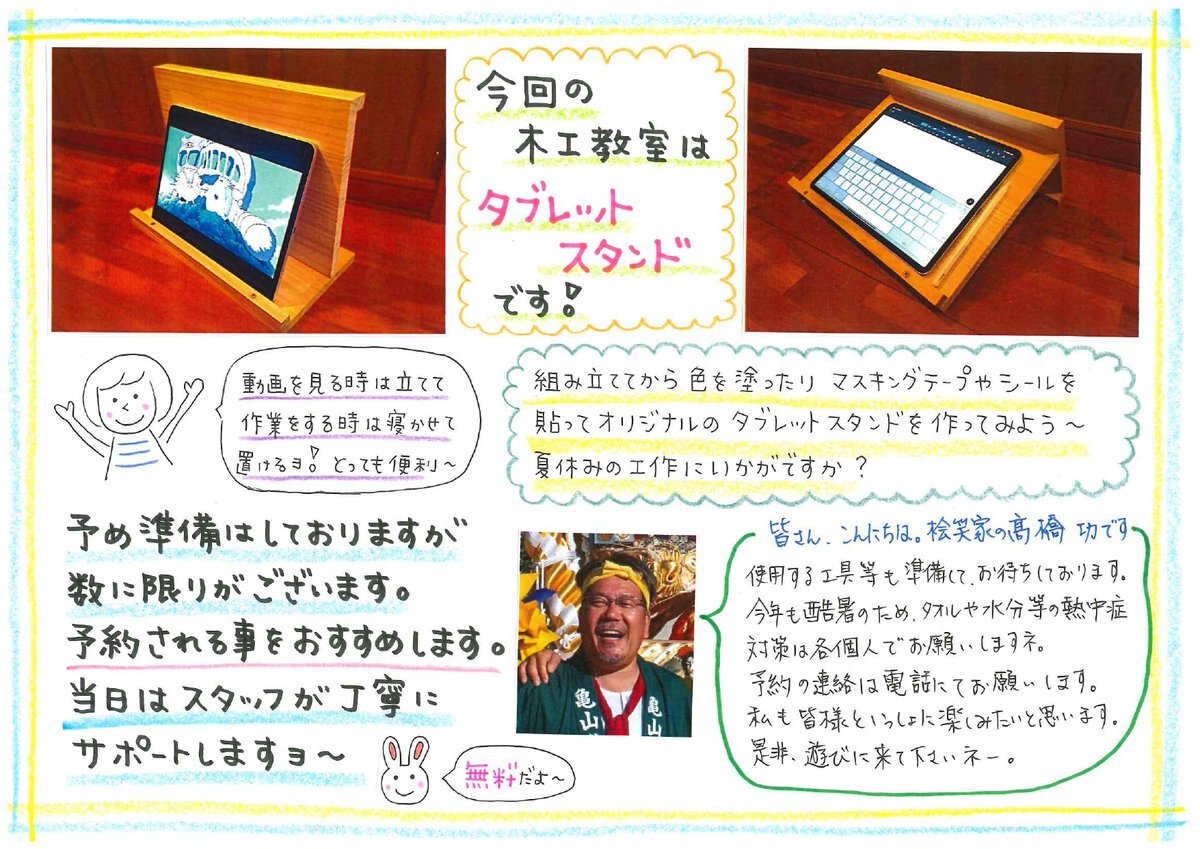 今回の
木工教室は
タブレット
スタンド
です!
動画を見る時は立てて
作業をする時は寝かせて
置けるヨ!とっても便利～
組み立ててから色を塗ったり マスキングテープやシールを
貼ってオリジナルのタブレットスタンドを作ってみよう～
夏休みの工作にいかがですか?
予め準備はしておりますが
数に限りがございます。
予約される事をおすすめします。
当日はスタッフが丁寧に
サポートしますヨ～
無料だよ～
皆さん、こんにちは。桧笑家の髙橋 功です
使用する工具等も準備して、お待ちしております。
今年も酷暑のため、タオルや水分等の熱中症
対策は各個人でお願いしますネ。
予約の連絡は電話にてお願いします。
私も皆様といっしょに楽しみたいと思います。
是非、遊びに来て下さいネー。
亀山
亀山